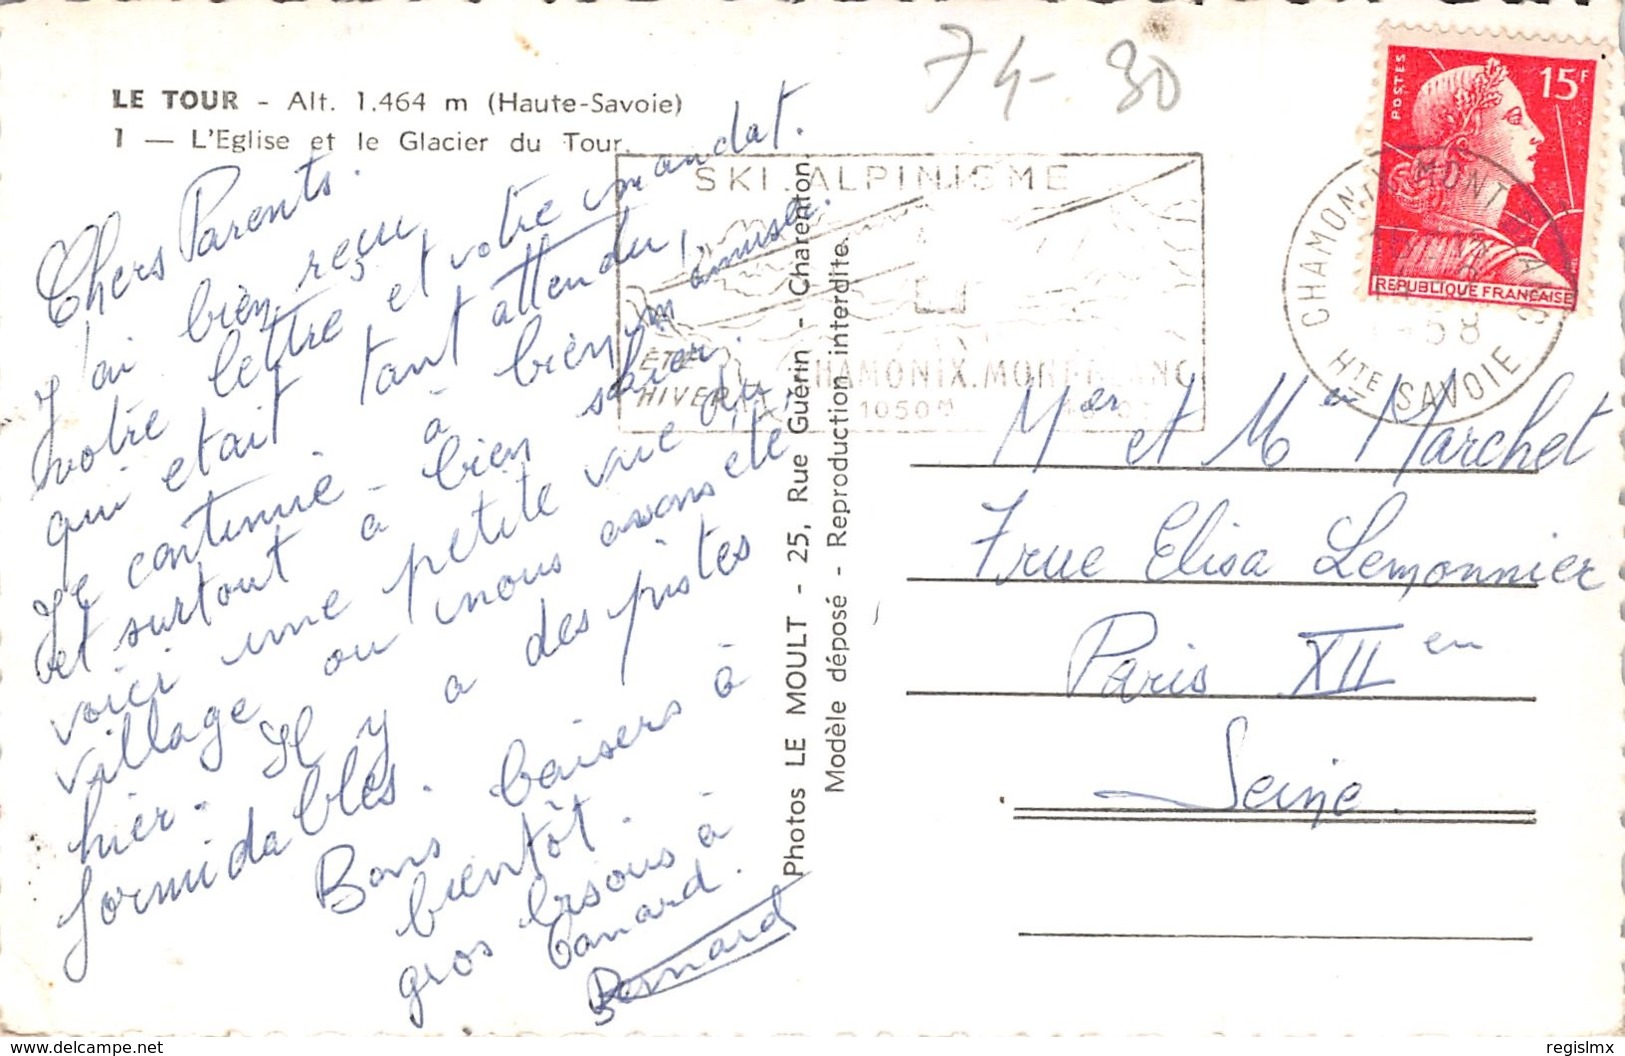 LE TOUR - Alt. 1.464 m (Haute-Savoie)
1 — L'Eglise et le Glacier du Tour.
74-30
Chers Parents.
J'ai bien reçu
votre lettre et votre mandat.
qui etait tant attendu,
Je continue à bien m'amuser.
et surtout à bien skier.
voici une petite vue du
village ou nous avons eté
hier. Il y a des pistes
formidables.
Bons baisers à
bientôt.
gros bisous à
Canard.
Bernard
Photos LE MOULT - 25, Rue Guérin - Charenton.
Modèle déposé - Reproduction interdite.
SKI. ALPINISME
ÉTÉ
HIVER
CHAMONIX. MONT-BLANC
1050M
POSTES
15F
REPUBLIQUE FRANÇAISE
CHAMONIX MONT BLANC
HTE SAVOIE
Mer et Men Marchet
7 rue Elisa Lemonnier
Paris XII en
Seine.
www.delcampe.net
regislmx